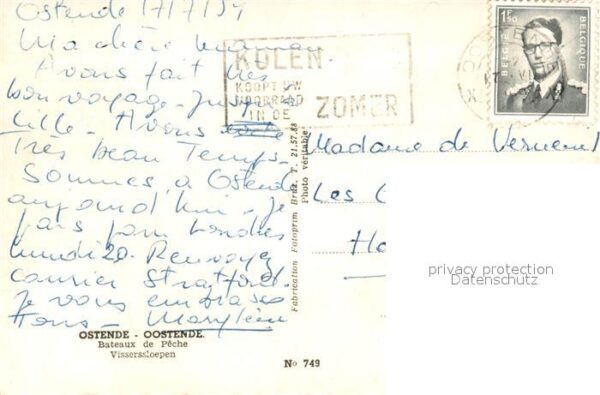 Ostende 17/7/54
Ma chère maman
Avons fait très
bon voyage jusqu'à
Lille - Avons
Très beau Temps.
Sommes à Ostende
aujourd'hui - Je
pars pour Londres
lundi 20. Renvoyez
courrier Stratford.
Je vous embrasse
Tous - Marylène
KOLEN
KOOPT UW
VOORRAAD
IN DE
ZOMER
1F50
BELGIE
BELGIQUE
Madame de
Les
Fabrication Fotoprim Brux. T. 21.57.88
Photo véritable
privacy protection
Datenschutz
OSTENDE - OOSTENDE.
Bateaux de Pêche
Visserssloepen
No 749